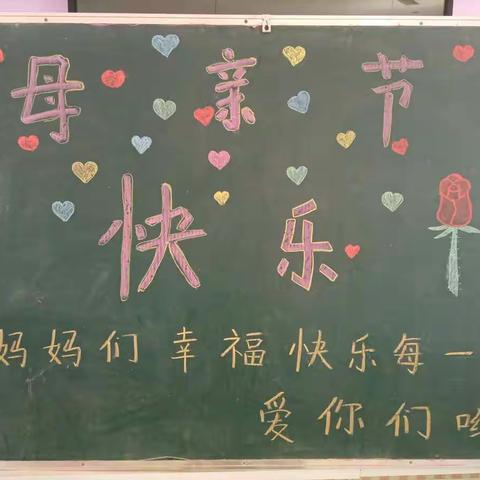 母亲节
快乐
妈妈们幸福快乐每一
爱你们